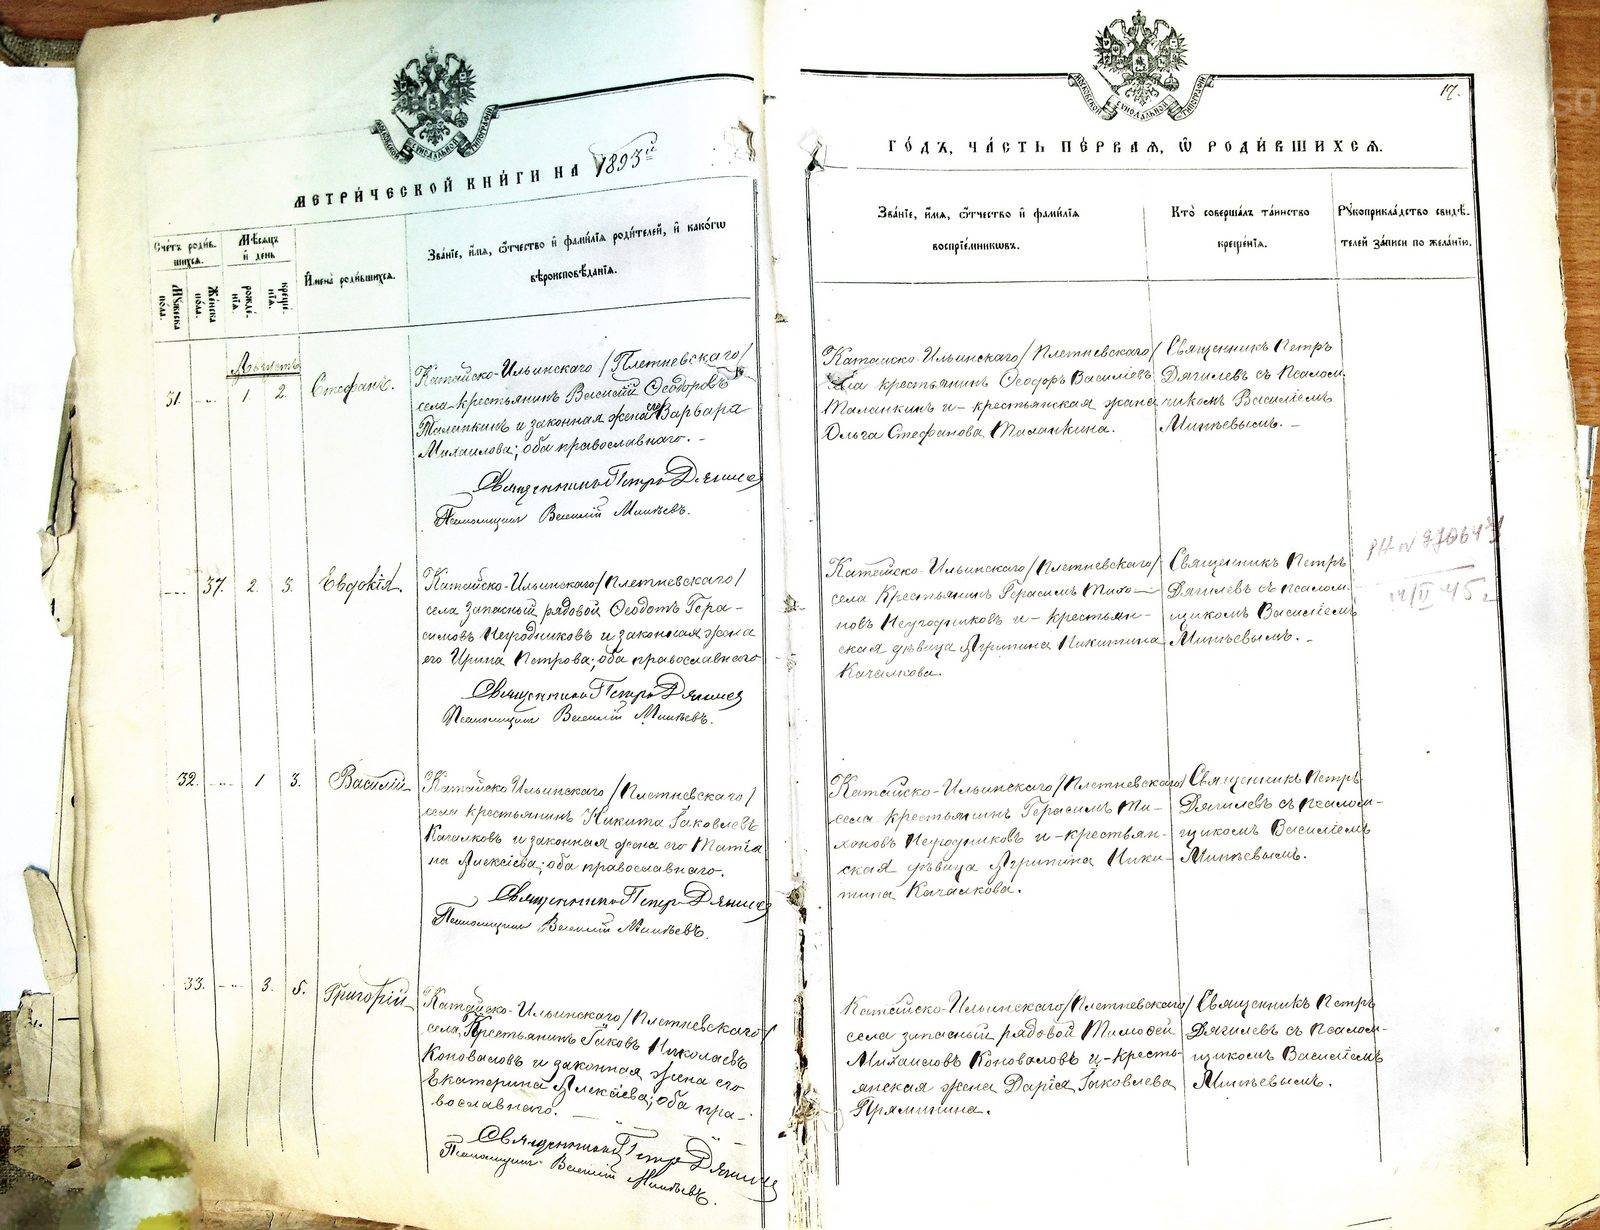 МОСКОВСКОЙ СѴНОДАЛЬНОЙ ТИПОГРАФІИ
МЕТРИ́ЧЕСКОЙ КНИ́ГИ НА 1893й
Сче́тъ роди́в-
шихсѧ.
Мѣ́сѧцъ
и҆ день
Мꙋ́жеска
по́ла.
Же́нска
по́ла.
рожде́-
нїѧ.
креще́-
нїѧ.
И҆мена̀ роди́вшихсѧ.
Зва́нїе, и҆́мѧ, ѻ҆́тчество и҆ фами́лїѧ роди́телей, и҆ како́гѡ
вѣроисповѣ́данїѧ.
Августъ
31. - - 1 2. Стефанъ.
Катайско-Ильинскаго /Плетневскаго/
села крестьянинъ Василій Ѳеодоровъ
Маланкинъ и законная жена его Варвара
Михаилова; оба православнаго. -
Священникъ Петръ Дягилев
Псаломщикъ Василій Минѣевъ.
- - - 37. 2. 3. Евдокія
Катайско-Ильинскаго /Плетневскаго/
села запасный рядовой Ѳеодотъ Гера-
симовъ Негодниковъ и законная жена
его Ирина Петрова; оба православнаго
Священникъ Петръ Дягилев
Псаломщикъ Василій Минѣевъ.
32. - - 1 3. Василій
Катайско Ильинскаго /Плетневскаго/
села крестьянинъ Никита Іаковлевъ
Качалковъ и законная жена его Татіа
на Алексіева; оба православнаго.
Священникъ Петръ Дягилев
Псаломщикъ Василій Минѣевъ.
33. - - 3. 5. Григорій
Катайско-Ильинскаго /Плетневскаго/
села, Крестьянинъ Іаковъ Николаевъ
Коноваловъ и законная жена его
Екатерина Алексіева; оба пра-
вославнаго. -
Священникъ Петръ Дягилев
Псаломщикъ Василій Минѣевъ.
МОСКОВСКОЙ СѴНОДАЛЬНОЙ ТИПОГРАФІИ
17.
ГО́ДЪ, ЧА́СТЬ ПЕ́РВАЯ, Ѡ҆ РОДИ́ВШИХСѦ.
Зва́нїе, и҆́мѧ, ѻ҆́тчество и҆ фами́лїѧ
воспрїе́мникѡвъ.
Кто̀ соверша́лъ та́инство
креще́нїѧ.
Рꙋкоприкла́дство свидѣ́-
телей за́писи по жела́нїю.
Катайско-Ильинскаго /Плетневскаго/
села крестьянинъ Ѳеодоръ Василіевъ
Маланкинъ и - крестьянская жена
Ольга Стефанова Маланкина.
Священникъ Петръ
Дягилевъ съ Псалом-
щикомъ Василіемъ
Минѣевымъ. -
Катайско-Ильинскаго /Плетневскаго/
села Крестьянинъ Герасимъ Тихо-
новъ Негодниковъ и - крестьян-
ская дѣвица Агрипина Никитина
Качалкова
Священникъ Петръ
Дягилевъ съ псалом-
щикомъ Василіемъ
Минѣевымъ. -
Катайско-Ильинскаго /Плетневскаго/
села крестьянинъ Герасимъ Ти-
хоновъ Негодниковъ и - крестьян-
ская дѣвица Агрипина Ники-
тина Качалкова.
Священникъ Петръ
Дягилевъ съ псалом-
щикомъ Василіемъ
Минѣевымъ.
Катайско-Ильинскаго /Плетневскаго/
села запасный рядовой Тимоѳей
Михаиловъ Коноваловъ и - кресть-
янская жена Дарія Іаковлева
Прямикина.
Священникъ Петръ
Дягилевъ съ псалом-
щикомъ Василіемъ
Минѣевымъ.